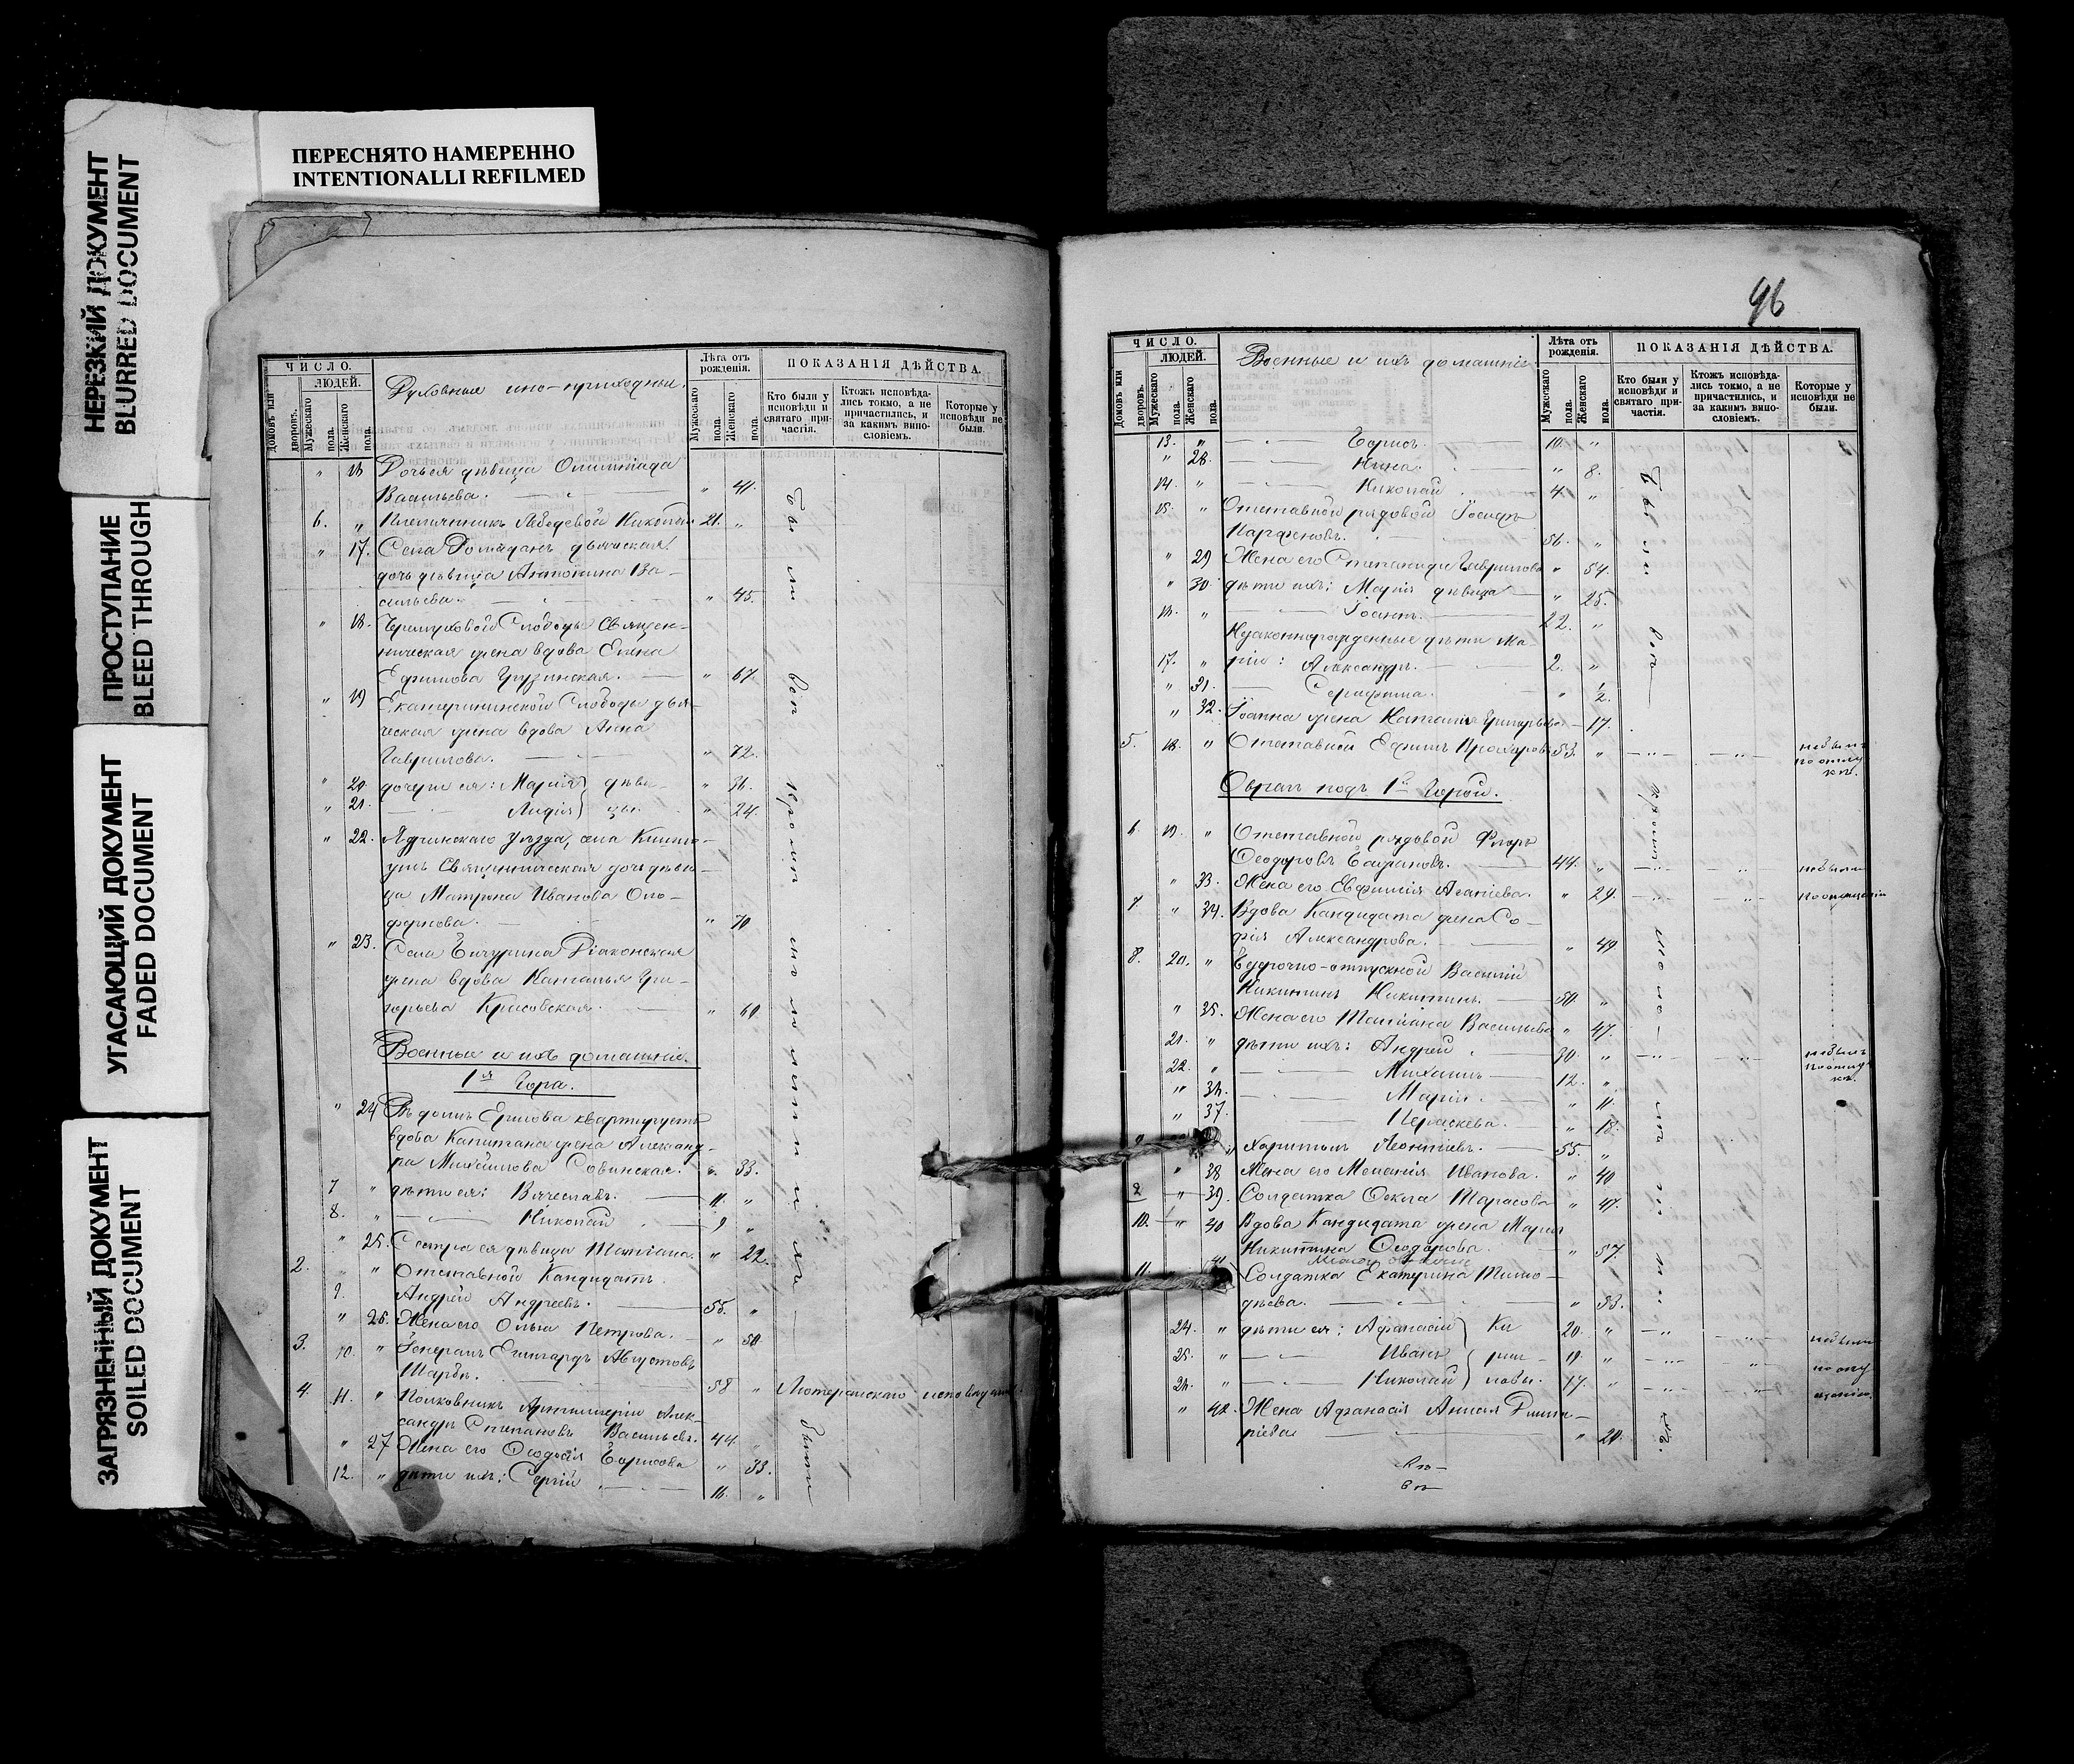 ПЕРЕСНЯТО НАМЕРЕННО
INTENTIONALLI REFILMED
НЕРЕЗКИЙ ДОКУМЕНТ
BLURRED DOCUMENT
ПРОСТУПАНИЕ
BLEED THROUGH
УГАСАЮЩИЙ ДОКУМЕНТ
FADED DOCUMENT
ЗАГРЯЗНЕННЫЙ ДОКУМЕНТ
SOILED DOCUMENT
ЧИСЛО.
ЛЮДЕЙ.
Домовъ или дворовъ.
Мужескаго пола.
Женскаго пола.
Духовныя ино-приходныя.
Лѣта отъ рожденія.
Мужескаго пола.
Женскаго пола.
ПОКАЗАНІЯ ДѢЙСТВА.
Кто были у исповѣди и святаго причастія.
Ктожъ исповѣдались токмо, а не причастились, и за какимъ винословіемъ.
Которые у исповѣди не были.
" 16 Дочь ея дѣвица Олимпіада
Васильева. " 41.
6. " Племянникъ Лебедевой Николай 21. "
" 17. Села дьяческая
дочь дѣвица Антонина Ва-
сильева. " 45.
" 18. Слободы Священ-
ническая жена вдова Елена
Ефимова Грузинская. " 67.
" 19 Екатерининской Слободы дья-
ческая жена вдова Анна
Гаврилова. " 72.
" 20. дочери ея: Марія дѣви- " 36.
" 21. Лидія цы. " 24.
" 22. Ядринскаго Уѣзда, села
Священническая дочь дѣви-
ца Матрона Иванова Оло-
фернова. " 70
" 23. Села Бичурина Діаконская
жена вдова Наталья Гри-
горьева Красовская. " 60
Военные и ихъ домашніе.
1я Гора.
" 24 Въ домѣ Ермлова квартируетъ
вдова Капитана жена Александ-
ра Михайлова Савинская. " 33.
7 " дѣти ея: Вячеславъ. 11. "
8. " Николай 9 "
" 25. Сестра ея дѣвица Татіана. " 22.
2. " Отставной Кандидатъ
9. Андрей Андреевъ. 55. "
" 26. Жена его Ольга Петрова. " 50
3. 10. " Генералъ Августовъ
58 " Лютеранскаго исповѣданія.
4. 11. " Полковникъ Артиллеріи Алек-
сандръ Степановъ Васильевъ. 44. "
" 27 Жена его Ѳеодосія Борисова " 33.
12. " дѣти ихъ: Сергій 16. "
Были
вси
кромѣ
были
96
ЧИСЛО.
ЛЮДЕЙ.
Домовъ или дворовъ.
Мужескаго пола.
Женскаго пола.
Военные и ихъ домашніе
Лѣта отъ рожденія.
Мужескаго пола.
Женскаго пола.
ПОКАЗАНІЯ ДѢЙСТВА.
Кто были у исповѣди и святаго причастія.
Ктожъ исповѣдались токмо, а не причастились, и за какимъ винословіемъ.
Которые у исповѣди не были.
13. " Борисъ. 10. "
" 28. Нина. " 8.
14. " Николай 4. "
15. " Отставной рядовой Іосифъ
Парфеновъ. 56. "
" 29 Жена его Степанида Гаврилова " 54.
" 30. дѣти ихъ: Марія дѣвица " 25.
16. " Іоаннъ. 22. "
Незаконнорожденные дѣти Ма-
17. " ріи: Александръ. 2. "
" 31. Серафима. " 1/2.
" 32. Іоанна жена Наталія Григорьева 17.
5. 18. " Отставной Ефимъ Прохоровъ 53. " не былъ
по отлуч
кѣ.
Оврагъ подъ 1й Горой.
6. 19. " Отставной рядовой Флоръ
Ѳеодоровъ 44. " не были
" 33. Жена его Евфимія Агапіева. " 29. по опущенію
7. " 34. Вдова Кандидата жена Со-
фія Александрова. " 49
8. 20. " Безсрочно-отпускной Василій
Никитинъ Никитинъ. 50. "
" 35. Жена его Татіана Васильева " 47.
21. " дѣти ихъ: Андрей 20. " не былъ
по отлуч
кѣ.
22. " Михаилъ 12. "
" 36. Марія. " 11.
" 37. Параскева. " 18.
" Харитонъ Леонтіевъ. 55. "
" 38 Жена его Меланія Иванова. " 40
" 39. Солдатка Ѳекла Тарасова " 47.
10. " 40 Вдова Кандидата жена Марія
Никитина Ѳеодорова. " 57.
11. 41 Солдатка Екатерина Тимо-
" 53.
24. " дѣти ея: Афанасій Ки 20. " не были
25. " Иванъ рил 19. " по опу
26. " Николай ловы. 17. " щенію.
" 42. Жена Афанасія Анисія Димит-
ріева " 20.
Были
вси
кромѣ